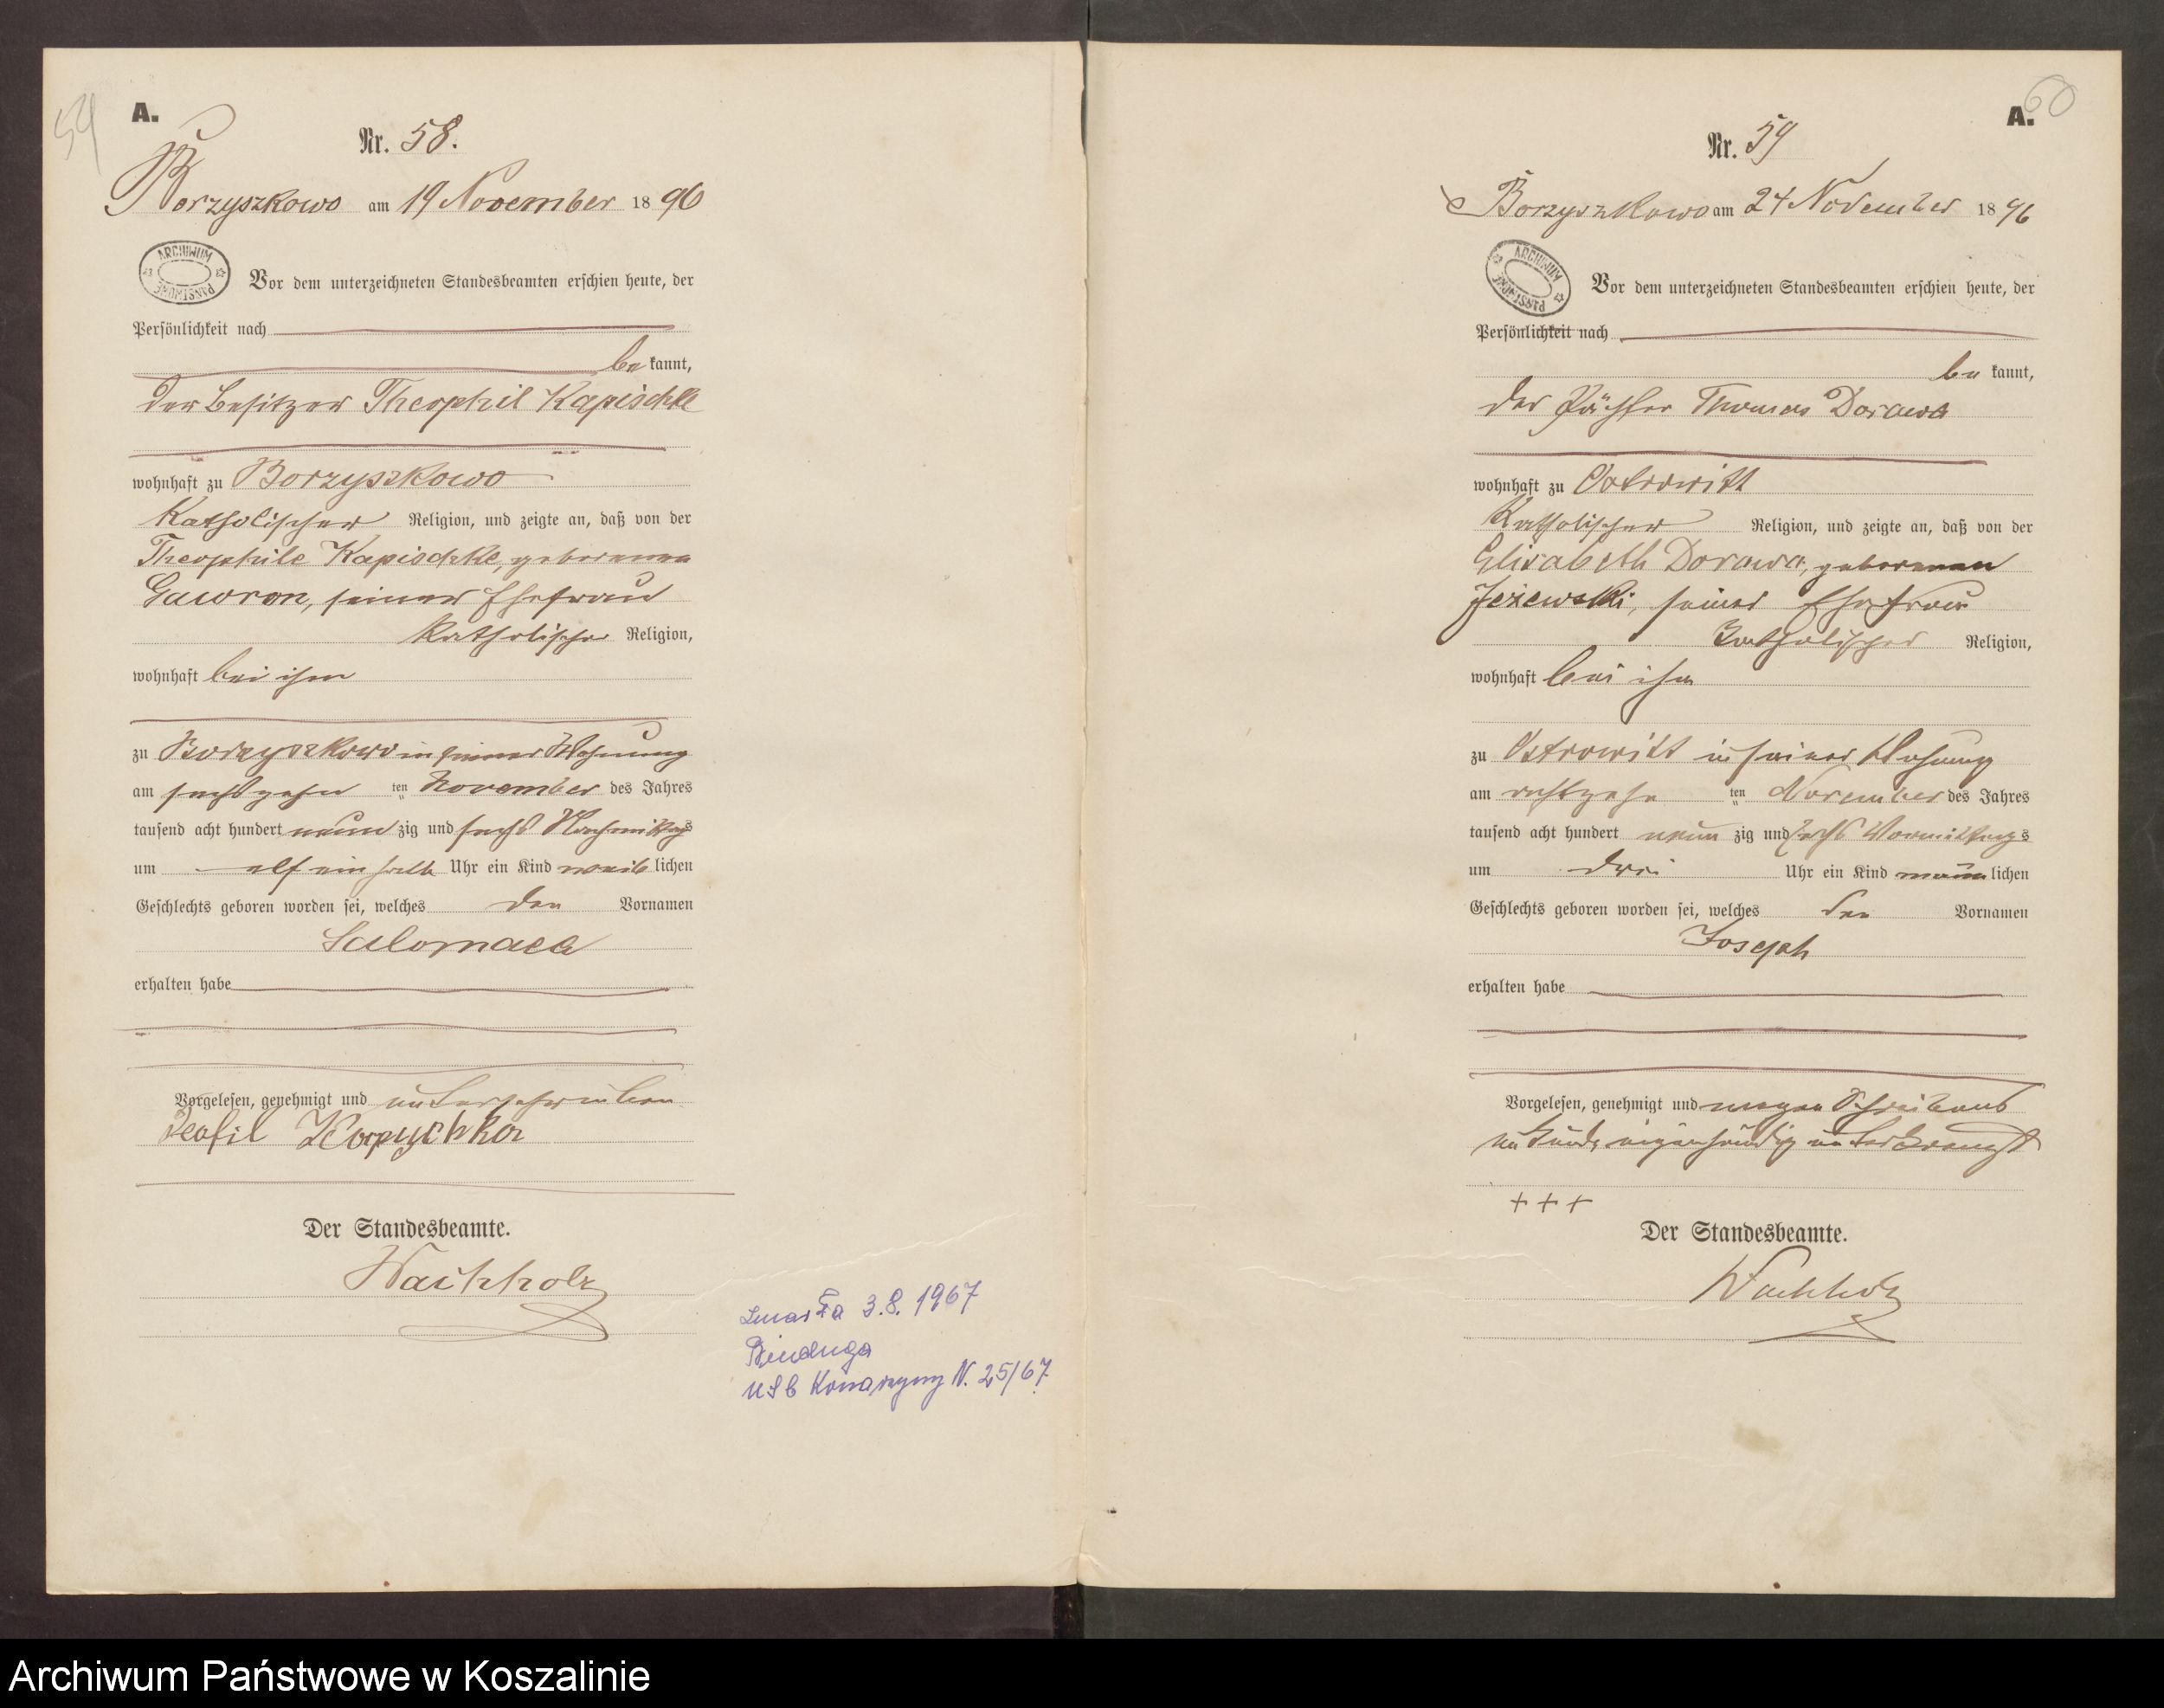 59
A.
Nr. 58.
Borzyszkowo am 19 November 1896
ARCHIWUM PAŃSTWOWE
Vor dem unterzeichneten Standesbeamten erschien heute, der
Persönlichkeit nach
be kannt,
der Besitzer Theophil Kapischke
wohnhaft zu Borzyszkowo
Katholischer Religion, und zeigte an, daß von der
Theophile Kapischke, geborenen
Gawron, seiner Ehefrau
Katholischer Religion,
wohnhaft bei ihm
zu Borzyszkowo in seiner Wohnung
am sechszehn ten November des Jahres
tausend acht hundert neun zig und sechs Nachmittags
um elf ein halb Uhr ein Kind weib lichen
Geschlechts geboren worden sei, welches den Vornamen
Salomaea
erhalten habe
Vorgelesen, genehmigt und unterschrieben
Teofil Kapychka
Der Standesbeamte.
Wachholz
zmarła 3.8.1967
Binduga
USC Konarzyny N. 25/67
60
A.
Nr. 59
Borzyszkowo am 24 November 1896
ARCHIWUM PAŃSTWOWE
Vor dem unterzeichneten Standesbeamten erschien heute, der
Persönlichkeit nach
be kannt,
der Pächter Thomas Dorawa
wohnhaft zu Ostrowitt
Katholischer Religion, und zeigte an, daß von der
Elisabeth Dorawa, geborenen
Jezewski, seiner Ehefrau
Katholischer Religion,
wohnhaft bei ihm
zu Ostrowitt in seiner Wohnung
am achtzehn ten November des Jahres
tausend acht hundert neun zig und sechs Vormittags
um drei Uhr ein Kind männ lichen
Geschlechts geboren worden sei, welches den Vornamen
Joseph
erhalten habe
Vorgelesen, genehmigt und wegen Schreibens
unkunde eigenhändig unterkreuzt
+++
Der Standesbeamte.
Wachholz
Archiwum Państwowe w Koszalinie